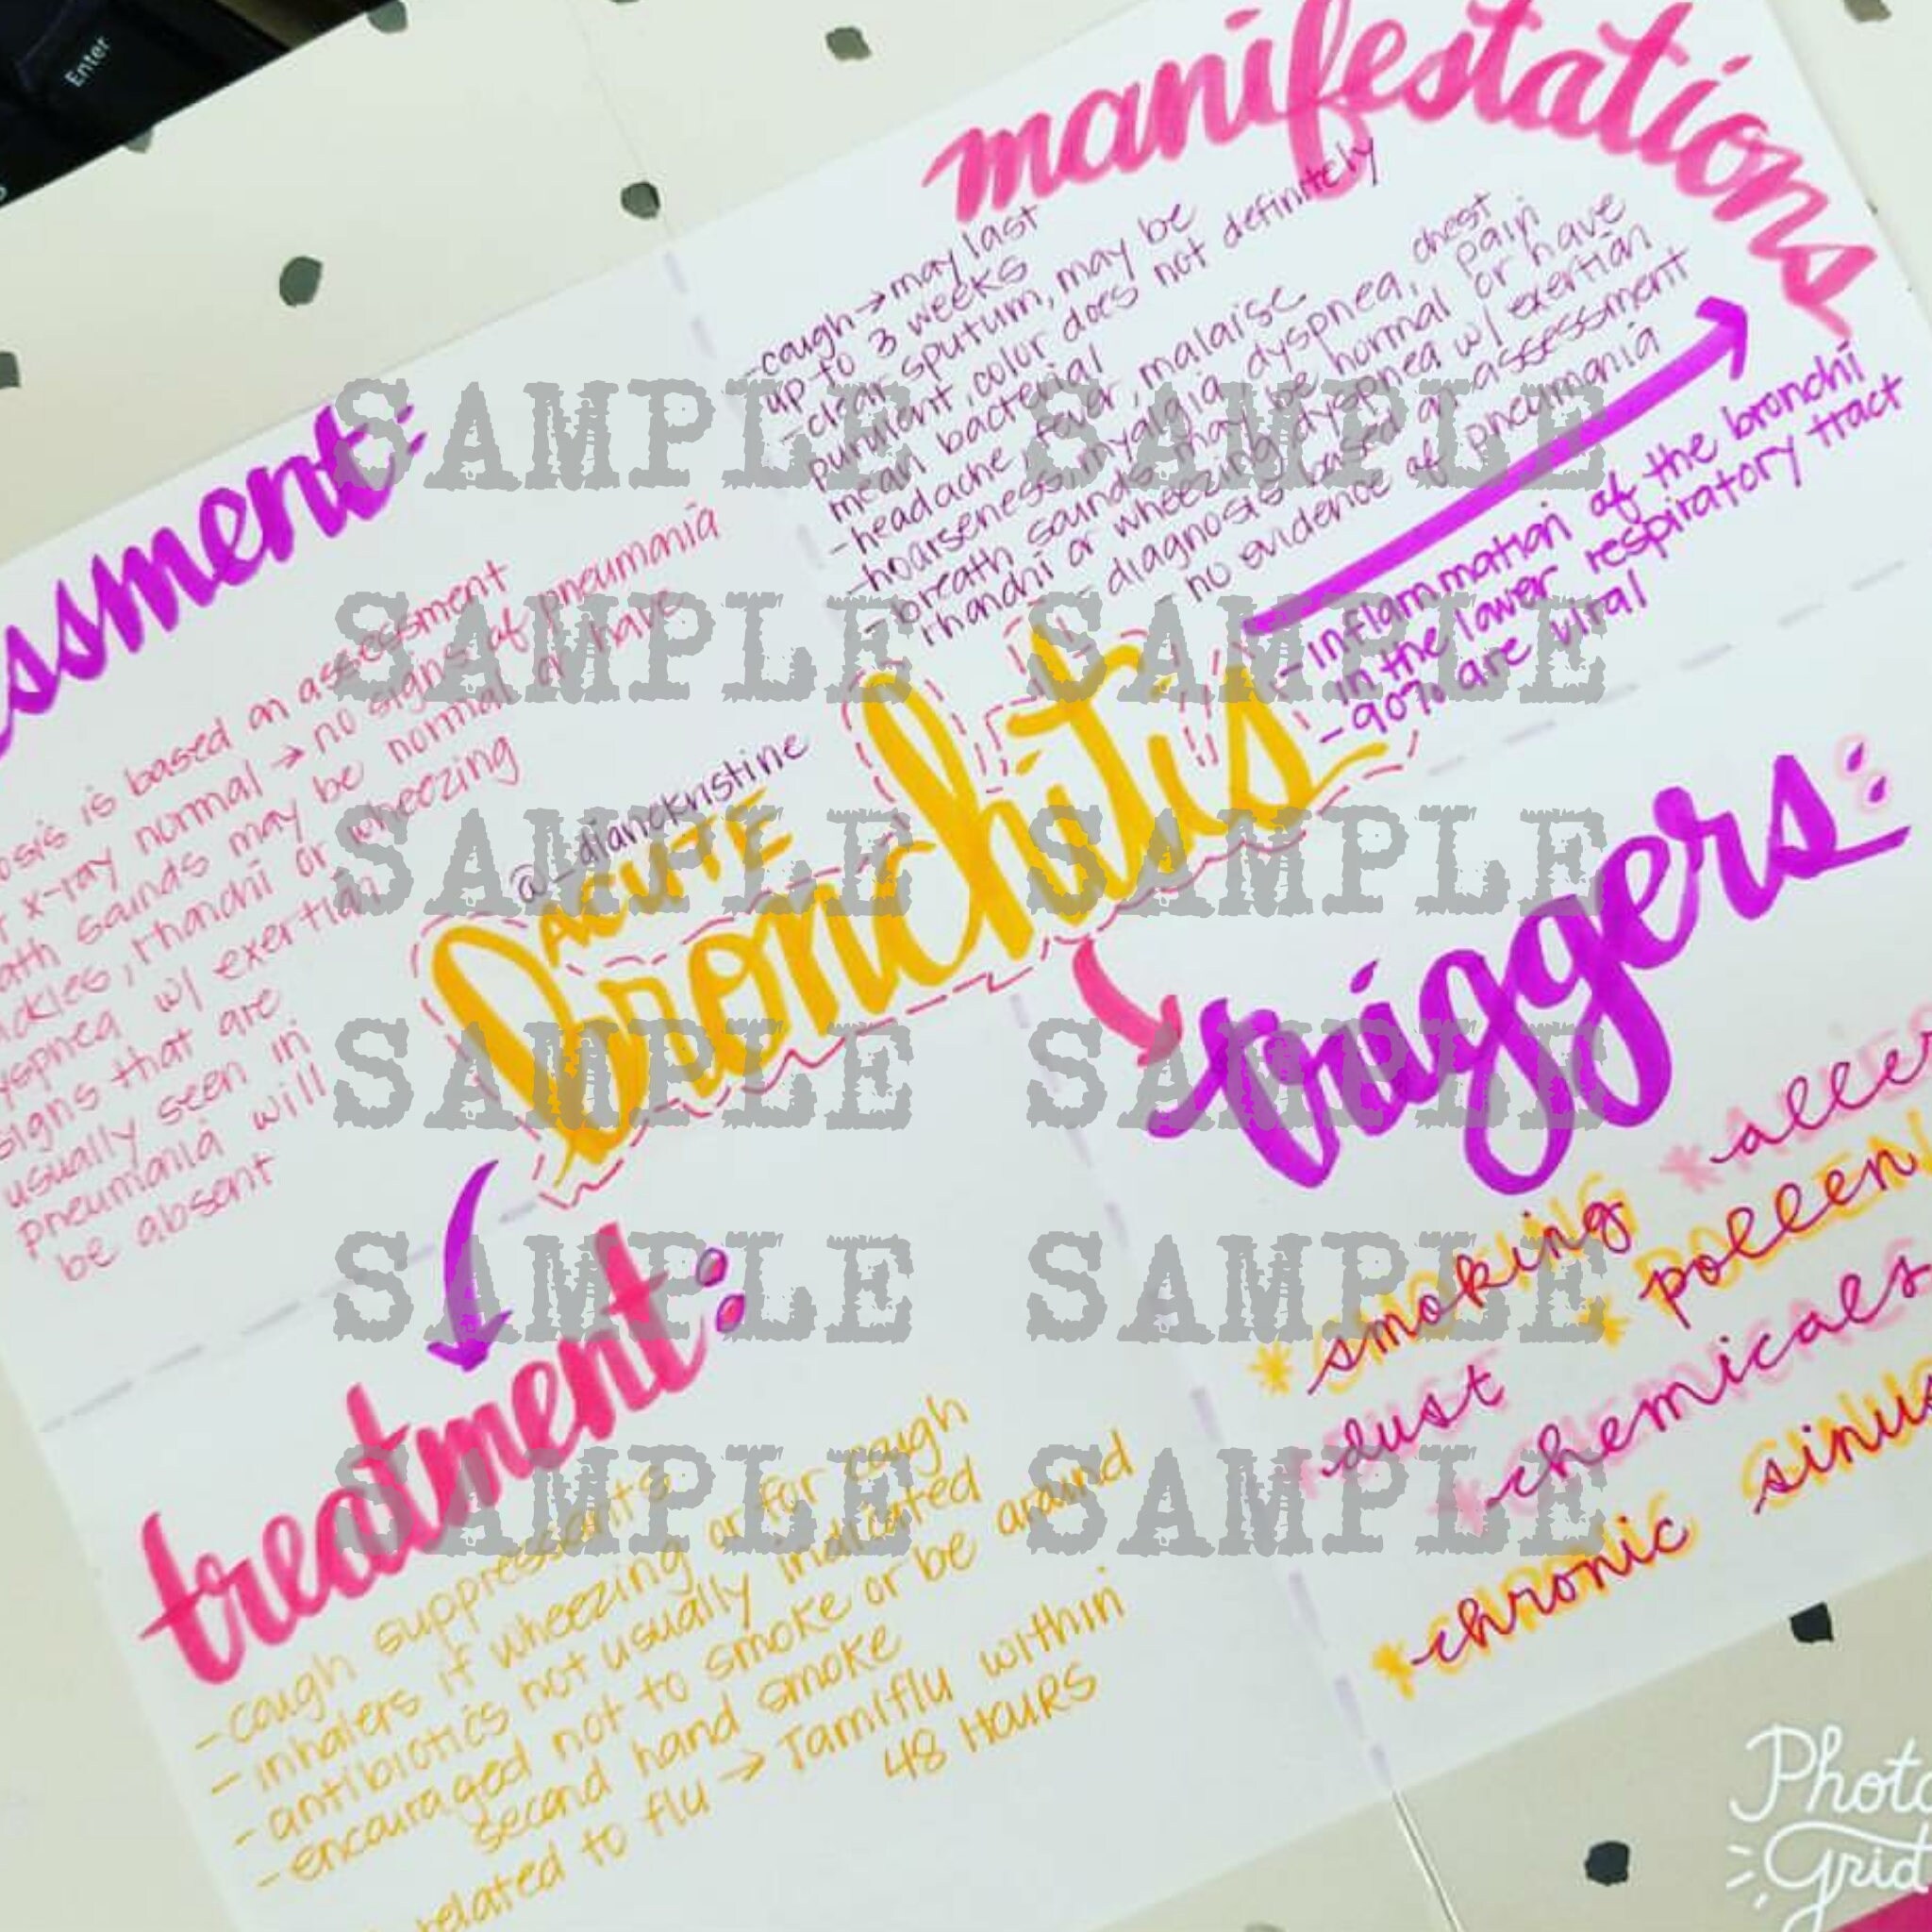 Enter
manifestations
-cough → may last
up to 3 weeks
-clear sputum, may be
purulent, color does not definitely
mean bacterial
-headache, fever, malaise
-hoarseness, myalgia, dyspnea, chest pain
-breath sounds may be normal or have
rhonchi or wheezing, dyspnea w/ exertion
-diagnosis based on assessment
- no evidence of pneumonia
-inflammation of the bronchi
in the lower respiratory tract
-90% are viral
ssment:
osis is based on assessment
x-ray normal → no signs of pneumonia
ath sounds may be normal or have
ackles, rhonchi or wheezing
yspnea w/ exertion
signs that are
usually seen in
pneumonia will
be absent
@_dianekristine
ACUTE
bronchitis
triggers:
*smoking *aller
*dust *pollen
*chemicals
*chronic sinus
treatment:
-cough suppressants
-inhalers if wheezing or for cough
-antibiotics not usually indicated
-encouraged not to smoke or be around
second hand smoke
related to flu → Tamiflu within
48 HOURS
Photo
Grid
SAMPLE SAMPLE
SAMPLE SAMPLE
SAMPLE SAMPLE
SAMPLE SAMPLE
SAMPLE SAMPLE
SAMPLE SAMPLE